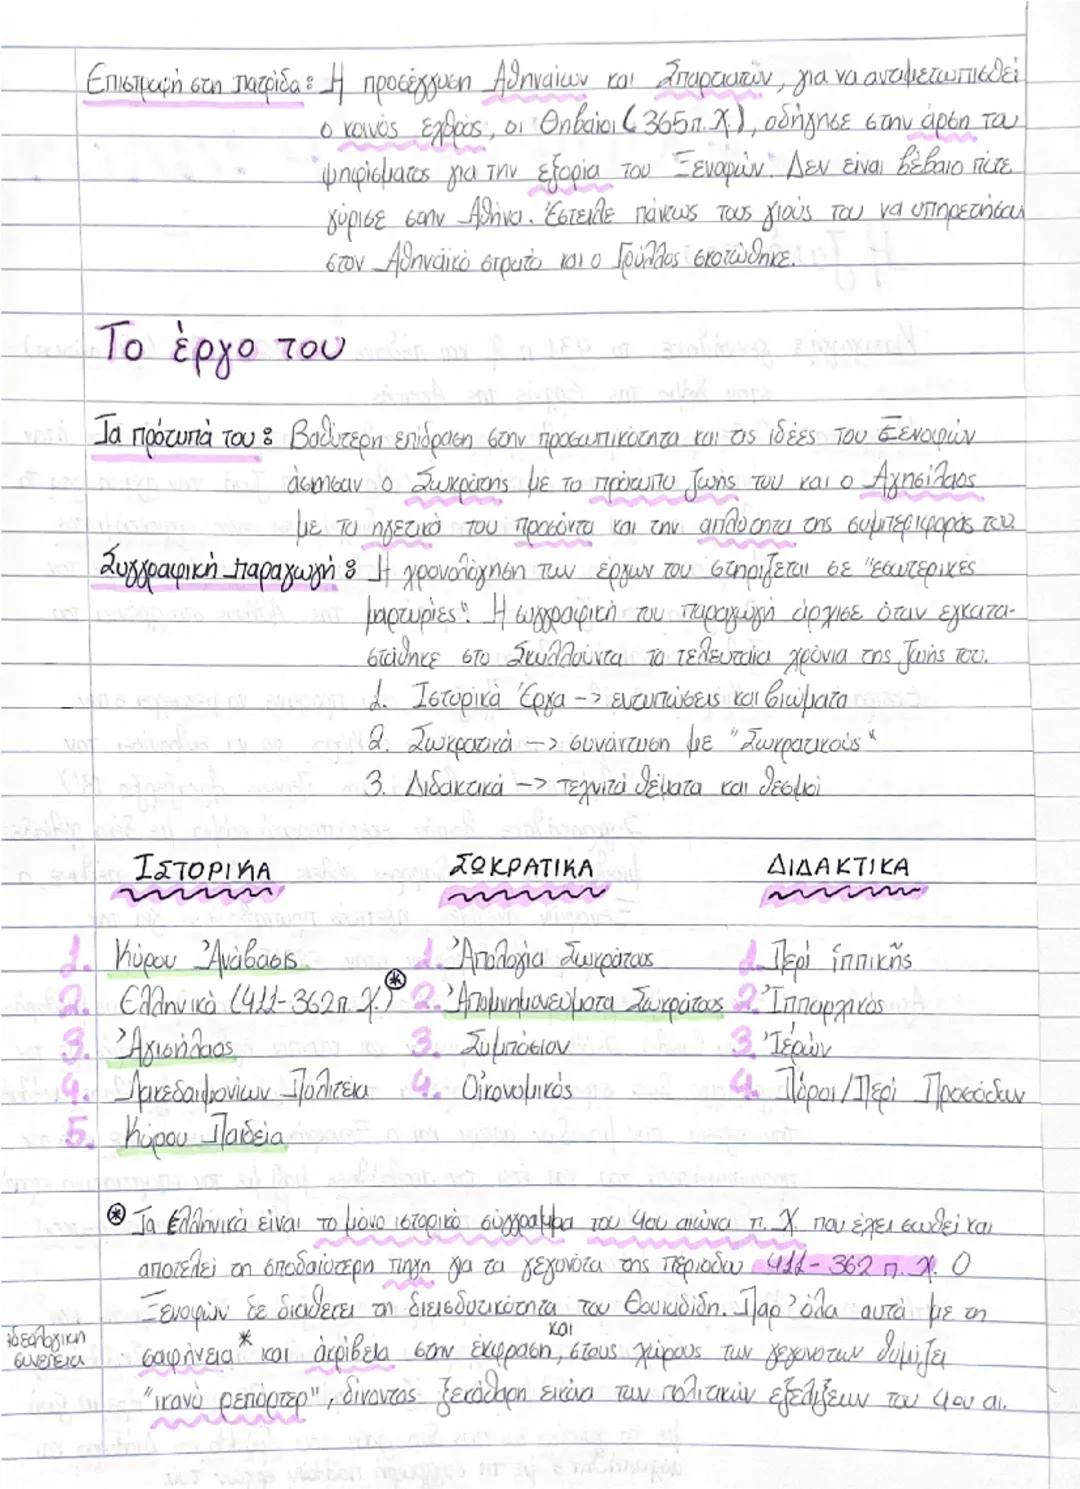 Επιστροφή στη πατρίδα: Η προσέγγυση Αθηναίων και Σπαρτιατών, για να αντιμετωπισθεί
ο κοινός εχθρός, οι Θηβαίοι (365π.Χ.), οδήγησε στην άρση του
ψηφίσματος για την εξορία του Ξενοφών. Δεν είναι βέβαιο πότε
γύρισε στην Αθήνα. Έστειλε πάντως τους γιούς του να υπηρετήσουν
στον Αθηναϊκό στρατό και ο Γρύλλος σκοτώθηκε.
Το έργο του
Τα πρότυπά του: Βαθύτερη επίδραση στην προσωπικότητα και τις ιδέες του Ξενοφών
άσκησαν ο Σωκράτης με το πρότυπο ζωής του και ο Αγησίλαος
με το ηγετικό του προσόντα και την απλότητα της συμπεριφοράς του.
Συγγραφική παραγωγή: Η χρονολόγηση των έργων του στηρίζεται σε "εσωτερικές
μαρτυρίες". Η συγγραφική του παραγωγή άρχισε όταν εγκατα-
στάθηκε στο Σκιλλούντα τα τελευταία χρόνια της ζωής του.
1. Ιστορικά Έργα -> εντυπώσεις και βιώματα
2. Σωκρατικά -> συνάντηση με "Σωκρατικούς"
3. Διδακτικά -> τεχνιτά θέματα και θεσμοί
ΙΣΤΟΡΙΚΑ ΣΩΚΡΑΤΙΚΑ ΔΙΔΑΚΤΙΚΑ
1. Κύρου Ἀνάβασις 1. Ἀπολογία Σωκράτους 1. Περί ἱππικῆς
2. Ελληνικά (411-362π.Χ.)* 2. Ἀπομνημονεύματα Σωκράτους 2. Ἱππαρχικός
3. Ἀγισήλαος 3. Συμπόσιον 3. Ἱέρων
4. Λακεδαιμονίων Πολιτεία 4. Οἰκονομικός 4. Πόροι/Περί Προσόδων
5. Κύρου Παιδεία
* Τα Ελληνικά είναι το μόνο ιστορικό σύγγραμμα του 4ου αιώνα π.Χ. που έχει σωθεί και
αποτελεί τη σποδαιότερη πηγή για τα γεγονότα της περιόδου 411-362 π.Χ. Ο
Ξενοφών δε διαθέτει τη διεισδυτικότητα του Θουκιδίδη. Παρ' όλα αυτά με τη
ιδεολογική συνέπεια
σαφήνεια* και ακρίβεια στην έκφραση, και στους χώρους των γεγονότων θυμίζει
"ικανό ρεπόρτερ", δίνοντας ξεκάθαρη εικόνα των πολιτικών εξελίξεων του 4ου αι.